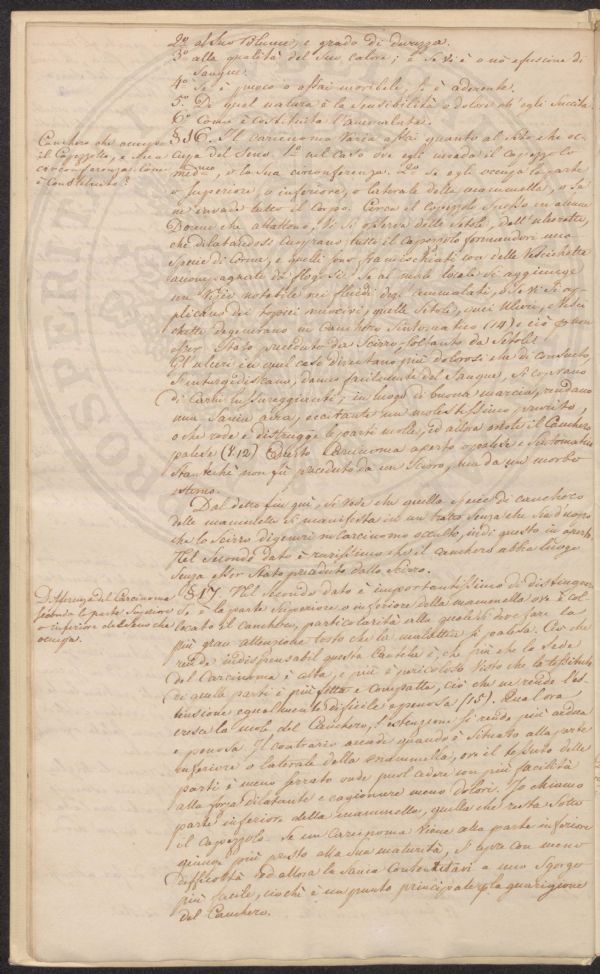 2.o al suo volume, e grado di durezza.
3.o alla qualità del suo calore; e se vi è o nò efusione di
sangue.
4.o Se è puoco o assai movibile, se è aderente.
5.o Di qual natura è la sensibilità o dolore ch' egli suscita.
6.o Come è costituita l'ammalata.
Canchero che occupa
il Capezzolo, e sua
circonferenza. Come
è Constituito?
§ 16. Il carcinoma varia assai quanto al sito che oc=
cupa del Seno. 1.o nel caso ove egli invada il capezzolo
medesimo, o la sua circonferenza. 2.o Se egli occupa la parte
o superiore, o inferiore, o laterale della mammella, o se
ne invade tutto il Corpo. Circa il Capezzolo spesso in alcune
Donne che allattono, vi si osserva delle Setole, dell' ulcerette,
che dilatandosi cuoprano tutto il Capezzolo formandovi una
specie di Corona, e quelli sono framischiati con delle Vescichette
accompagnate da flogosi. Se al male locale si aggiunge
un Vizio notabile nei fluidi degl' ammalati, o se vi si ap=
plicano dei topici nuocivi, quelle Setole, quei Ulceri,
degenerano in Canchero Sintomatico (14) e ciò non
esser stato preceduto da Scirro, soltanto da Setole.
Gl' ulceri in quel caso diventano più dolorosi che di consueto,
s'inturgidiscano, danno facilmente del Sangue, si coprano
di Carni lussureggianti; in luogo di buona marcia, rendano
una Sania acra, eccitante un molestissimo prurito,
o che rode e distrugge le parti molle, ed allora estole il Canchero
palese (§ 12) Questo Carcinoma aperto o palese e Sintomatico
stantechè non fù preceduto da un Scirro, ma da un morbo
esterno.
Dal detto fin quì, si vede che quella specie di canchero
delle mammelle si manifesta in un tratto senza che sia d'uopo
che lo Scirro digeneri in carcinoma occulto, indi questo in aperto.
Nel Secondo dato è rarissimo che il canchero abbia luogo
senza esser stato preceduto dallo Scirro.
Differenza del Carcinoma
secondo la parte superiore
o inferiore del Seno che
occupa.
§ 17. Nel Secondo dato è importantissimo di distinguere
se è la parte superiore o inferiore della mammella ove è col=
locato il canchero, particolarità alla quale si deve fare la
più gran attenzione tosto che la malattia si palesa. Ciò che
rende indispensabil questa Cautela è che più che la Sede
del Carcinoma è alta, e più è pericoloso visto che la tessitura
di quelle parti è più fitta e compatta, ciò che ne rende l'es=
tensione egualmente difficile e penosa (15). Qual ora
cresce la mole del Canchero, l'estenzione si rende più ardua
e penosa. Il contrario accade quando è situato alla parte
inferiore o laterale della mammella, ove il tessuto delle
parti è meno serrato onde puol cedere con più facilità
alla forza dilatante e cagionare meno dolori. Io chiamo
parte inferiore della mammella, quella che resta Sotto
il Capezzolo. Se un Carcinoma viene alla parte inferiore
giunge più presto alla sua maturità, s'apre con meno
difficoltà ed allora la Sanca Contenutasi a uno Sgorgo
più facile, ciochè è un punto principale p la guarigione
del Canchero.